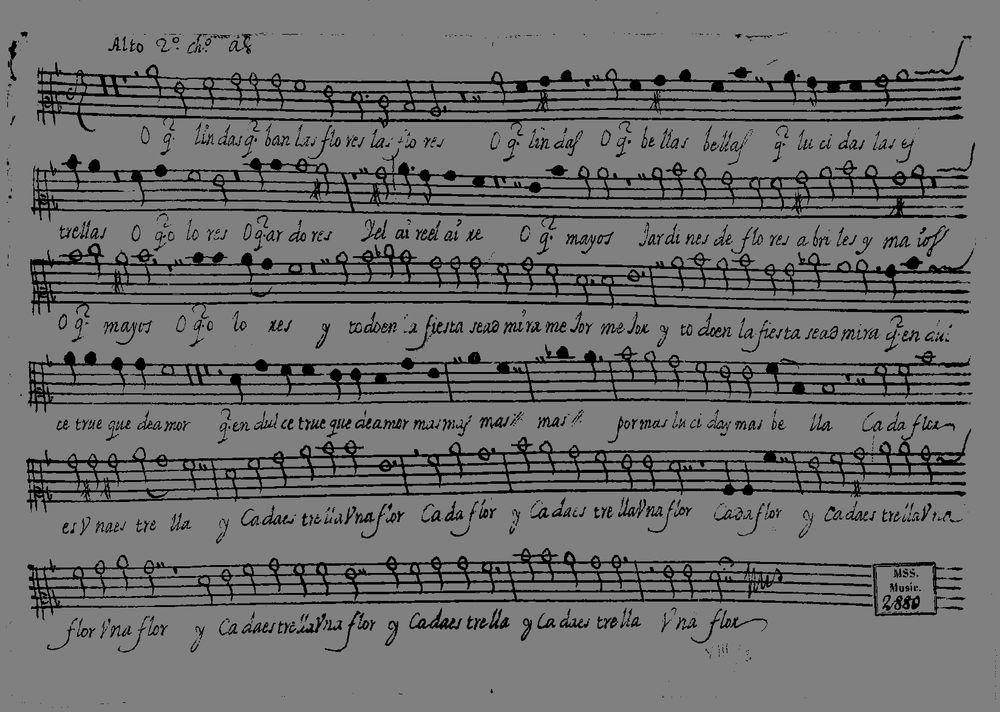 Alto 2º chº a8
O q̃ lindas q̃ ban las flores las flores O q̃ lindas O q̃ bellas bellas q̃ lucidas las es
trellas O q̃ olores O q̃ ardores y el aire el aire O q̃ mayos Jardines de flores abriles y maios
O q̃ mayos O q̃ olores y todo en la fiesta sea admira mejor mejor y todo en la fiesta sea admira q̃ en dul
ce trueque de amor q̃ en dulce trueque de amor mas mas mas mas por mas lucida y mas bella Cada flor
es Vna estrella y Cada estrella Vna flor Cada flor y Cada estrella Vna flor Cada flor y Cada estrella Vna
flor Vna flor y Cada estrella Vna flor y Cada estrella y Cada estrella Vna flor
MSS.
Music.
2880